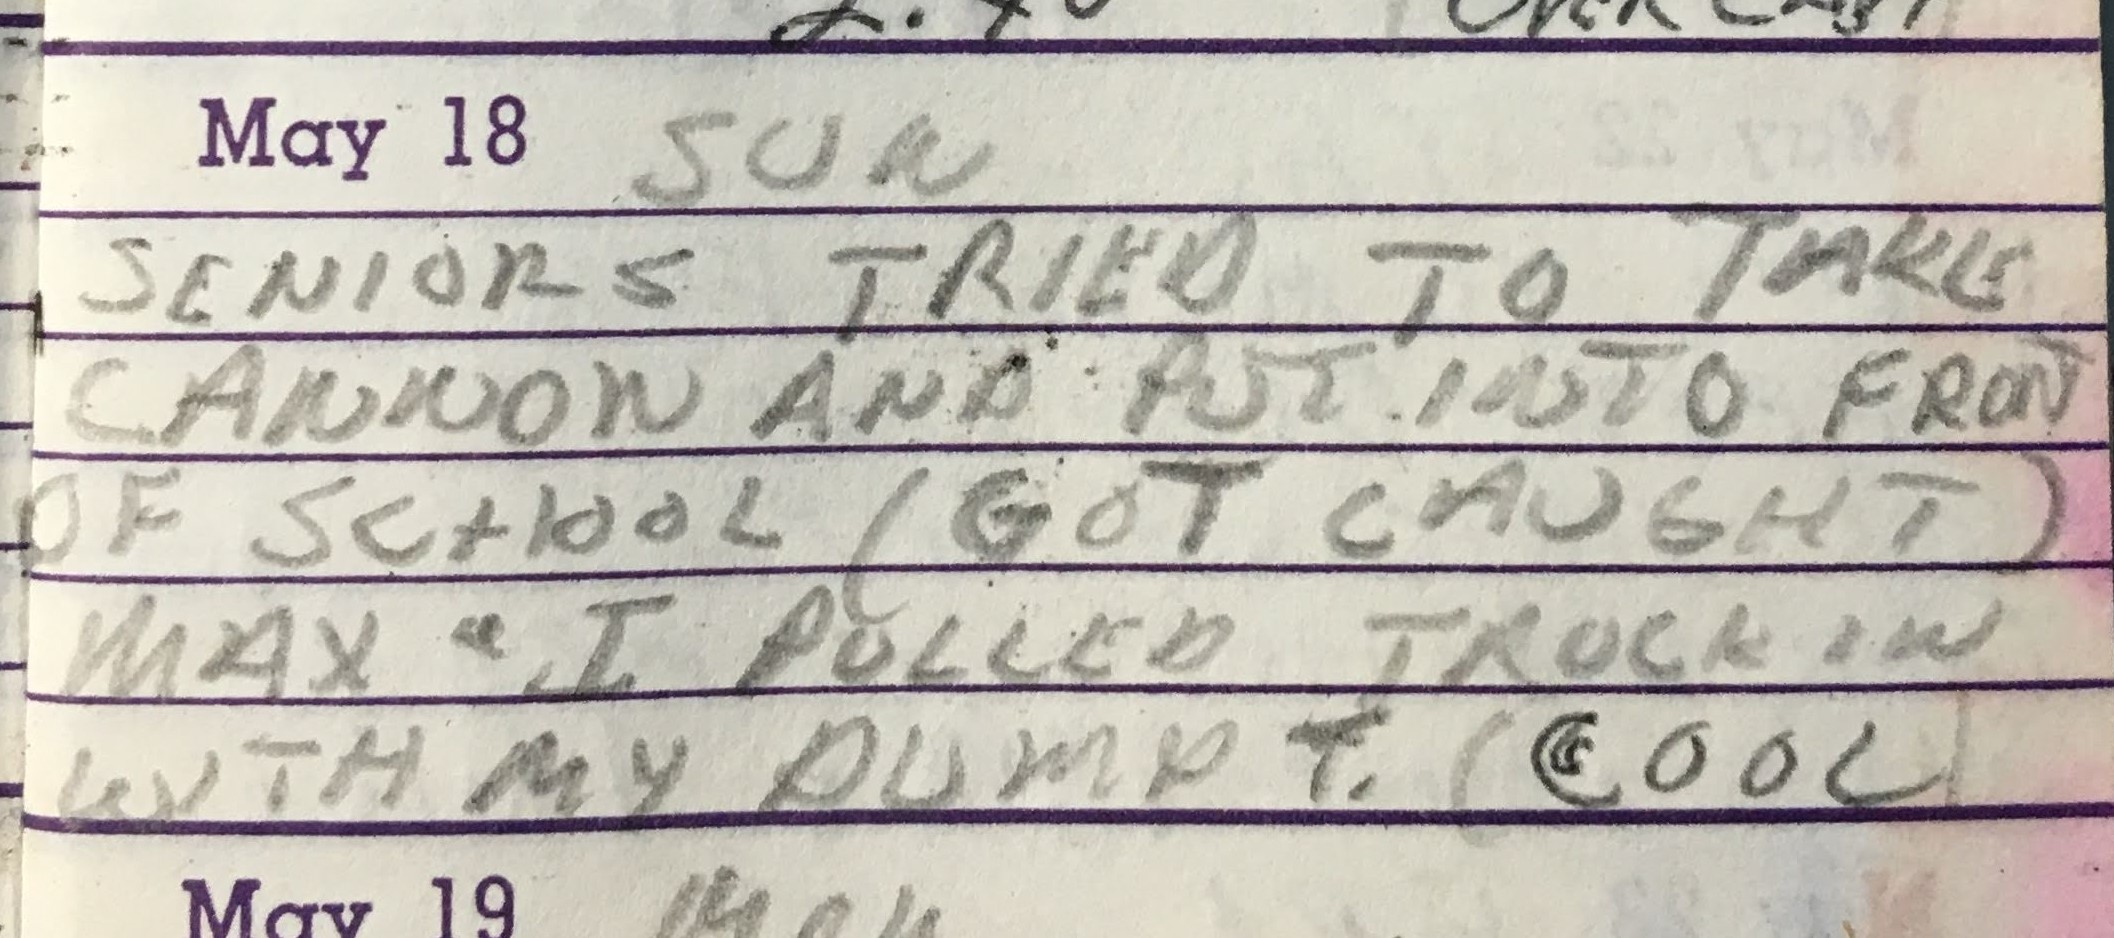 2.40 OVERCAST
May 18 SUN
SENIORS TRIED TO TAKE
CANNON AND PUT INTO FRONT
OF SCHOOL (GOT CAUGHT)
MAX & I PULLED TRUCK IN
WITH MY DUMP T. (COOL)
May 19 MON